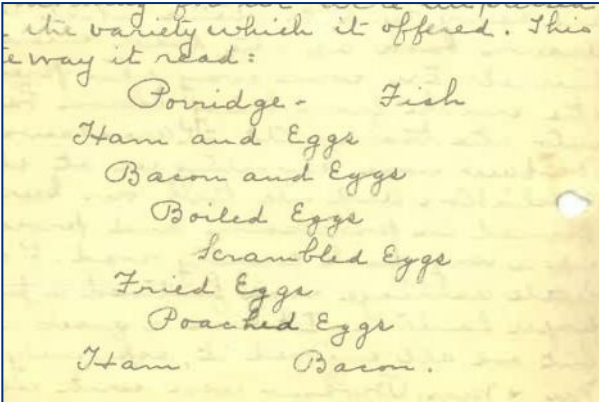 the variety which it offered. This
way it read:
Porridge - Fish
Ham and Eggs
Bacon and Eggs
Boiled Eggs
Scrambled Eggs
Fried Eggs
Poached Eggs
Ham Bacon.